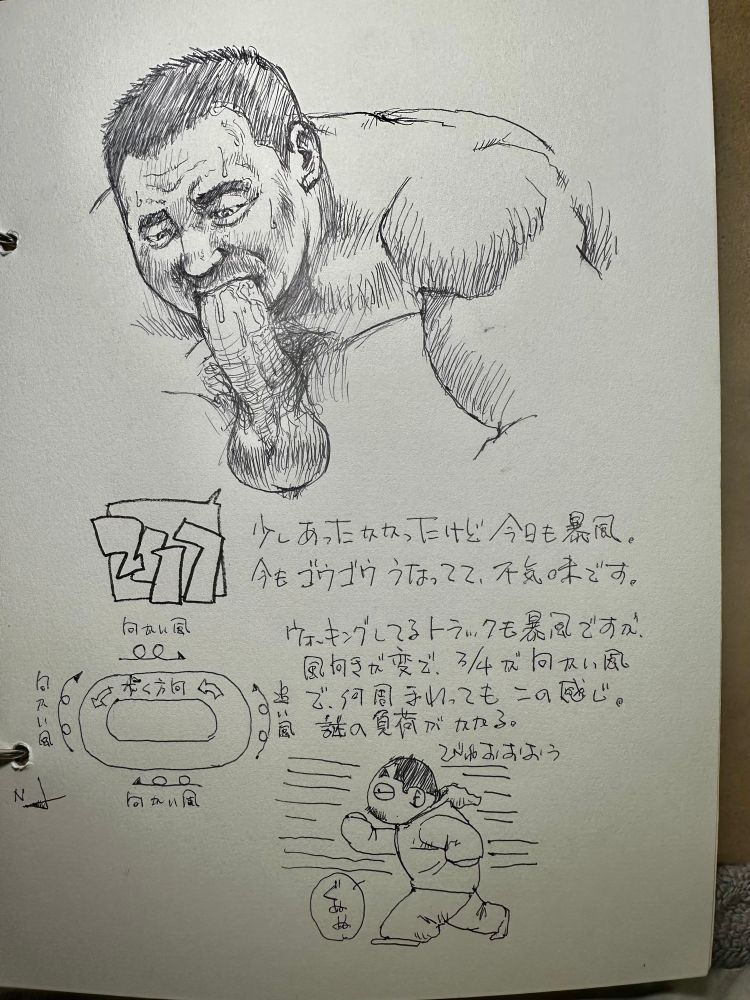 少しあったかかったけど今日も暴風。
今もゴウゴウうなってて、不気味です。
ウォーキングしてるトラックも暴風ですが、
風向きが変で、3/4が向かい風
で、何周まわってもこの感じ。
謎の負荷がかかる。
向かい風
向かい風
歩く方向
追い風
向かい風
N
びゅおおおう
ぐぬぬ